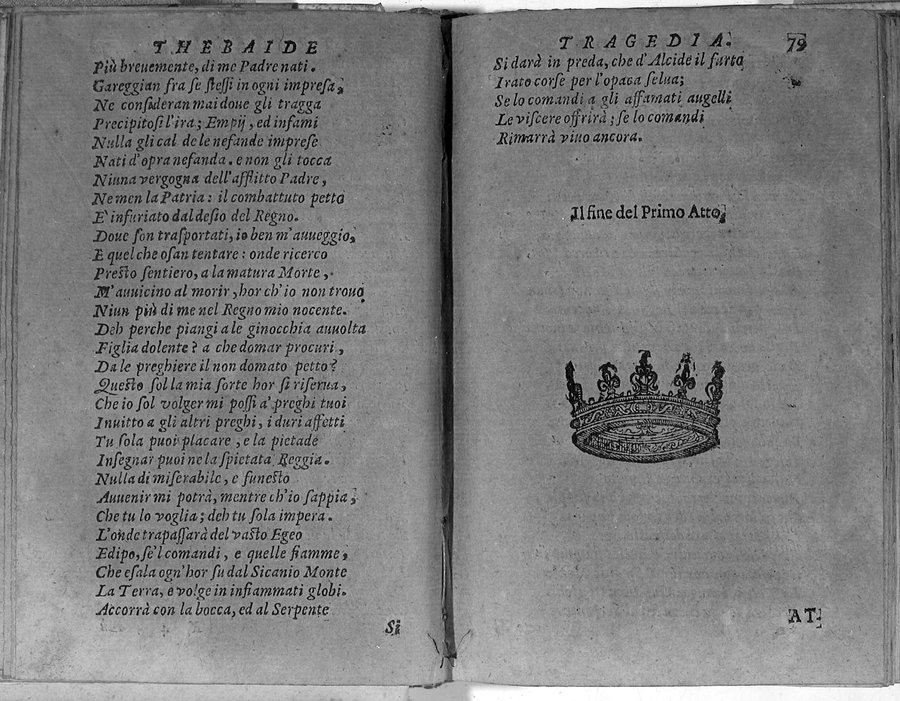 THEBAIDE
Più breuemente, di me Padre nati.
Gareggian fra se ſteſſi in ogni impreſa,
Ne conſideran mai doue gli tragga
Precipitoſi l'ira; Empij, ed infami
Nulla gli cal de le nefande impreſe
Nati d'opra nefanda. e non gli tocca
Niuna vergogna dell'afflitto Padre,
Ne men la Patria: il combattuto petto
E' infuriato dal deſio del Regno.
Doue ſon traſportati, io ben m'auueggio,
E quel che oſan tentare: onde ricerco
Preſto ſentiero, a la matura Morte,
M'auuicino al morir, hor ch'io non trouo
Niun più di me nel Regno mio nocente.
Deh perche piangi a le ginocchia auuolta
Figlia dolente? a che domar procuri,
Da le preghiere il non domato petto?
Queſto ſol la mia ſorte hor ſi riſerua,
Che io ſol volger mi poſſi a' preghi tuoi
Inuitto a gli altri preghi, i duri affetti
Tu ſola puoi placare, e la pietade
Inſegnar puoi ne la ſpietata Reggia.
Nulla di miſerabile, e funeſto
Auuenir mi potrà, mentre ch'io ſappia,
Che tu lo voglia; deh tu ſola impera.
L'onde trapaſſarà del vaſto Egeo
Edipo, ſe'l comandi, e quelle fiamme,
Che eſala ogn'hor ſu dal Sicanio Monte
La Terra, e volge in infiammati globi.
Accorrà con la bocca, ed al Serpente
Si
TRAGEDIA. 79
Si darà in preda, che d'Alcide il furto
Irato corſe per l'opaca ſelua;
Se lo comandi a gli affamati augelli
Le viſcere offrirà; ſe lo comandi
Rimarrà viuo ancora.
Il fine del Primo Atto.
AT-